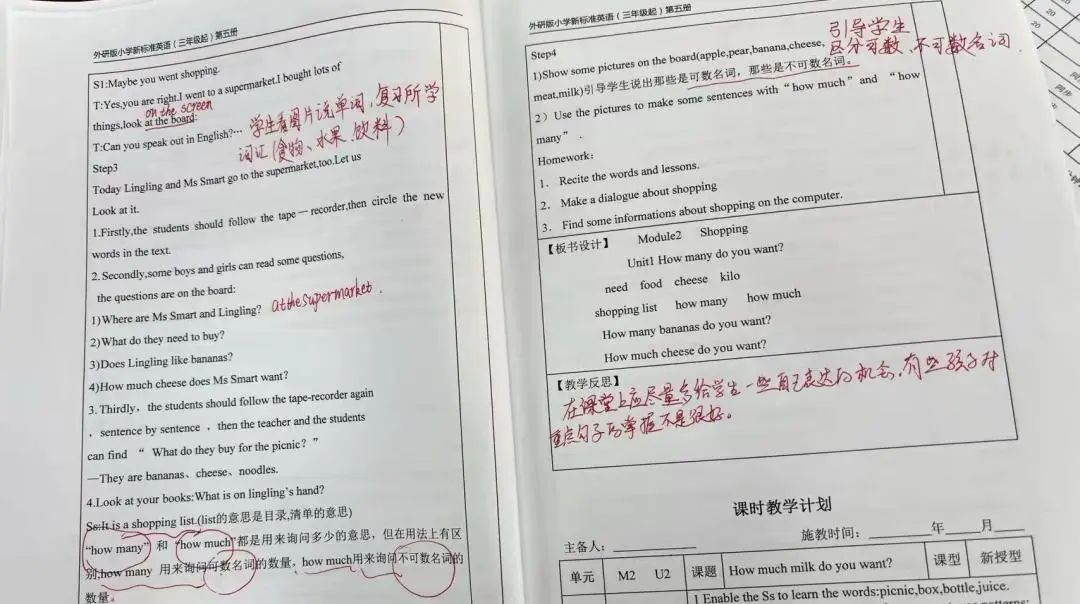 外研版小学新标准英语（三年级起）第五册
S1:Maybe you went shopping.
T:Yes,you are right.I went to a supermarket.I bought lots of
on the screen
things,look at the board:
T:Can you speak out in English?… 学生看图片说单词,复习所学
词汇(食物、水果、饮料)
Step3
Today Lingling and Ms Smart go to the supermarket,too.Let us
Look at it.
1.Firstly,the students should follow the tape — recorder,then circle the new
words in the text.
2. Secondly,some boys and girls can read some questions,
the questions are on the board:
1)Where are Ms Smart and Lingling? at the supermarket.
2)What do they need to buy?
3)Does Lingling like bananas?
4)How much cheese does Ms Smart want?
3. Thirdly, the students should follow the tape-recorder again
, sentence by sentence , then the teacher and the students
can find “ What do they buy for the picnic? ”
—They are bananas、cheese、noodles.
4.Look at your books:What is on lingling’s hand?
Ss:It is a shopping list.(list的意思是目录,清单的意思)
“how many” 和 “how much”都是用来询问多少的意思，但在用法上有区
别,how many 用来询问可数名词的数量，how much用来询问不可数名词的
数量。
外研版小学新标准英语（三年级起）第五册
Step4
引导学生
1)Show some pictures on the board(apple,pear,banana,cheese, 区分可数、不可数名词.
meat,milk)引导学生说出那些是可数名词，那些是不可数名词。
2）Use the pictures to make some sentences with “how much” and “how
many” .
Homework:
1. Recite the words and lessons.
2. Make a dialogue about shopping
3. Find some informations about shopping on the computer.
【板书设计】 Module2 Shopping
Unit1 How many do you want?
need food cheese kilo
shopping list how many how much
How many bananas do you want?
How much cheese do you want?
【教学反思】
在课堂上应尽量多给学生一些自己表达的机会,有些孩子对
重点句子的掌握不是很好。
课时教学计划
主备人： 施教时间： 年 月
单元 M2 U2 课题 How much milk do you want? 课型 新授型
1.Enable the Ss to learn the words:picnic,box,bottle,juice.
20
20
20
同步